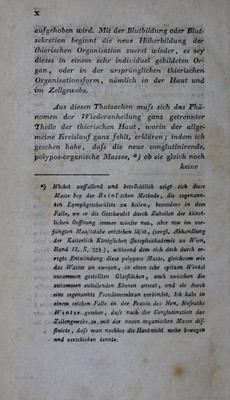 x
aufgehoben wird. Mit der Blutbildung oder Blut-
sekretion beginnt die neue Höherbildung der
thierischen Organisation zuerst wieder, es sey
dieses in einem sehr individuel gebildeten Or-
gan, oder in der ursprünglichen thierischen
Organisationsform, nämlich in der Haut und
im Zellgewebe.
Aus diesem Thatsachen muss sich das Phä-
nomen der Wiederanheilung ganz getrennter
Theile der thierischen Haut, worin der allge-
meine Kreislauf ganz fehlt, erklären; indem ich
gesehen habe, dass die neue conglutinirende,
polypos-organische Massee, *) ob sie gleich noch
keine
*) Höchst auffallend und beträchtlich zeigt sich diese
Masse bey der Methode, die sogenann-
ten Lymphgeschwülste zu heilen, besonders in dem
Falle, wo er die Geschwulst durch Zuheilen der künst-
lichen Oeffnung immer wieder neu, aber nur im ver-
jüngten Maasstabe entstehen lässt, (vergl. Abhandlung
der Kaiserlich Königlichen Josephsakademie zu Wien,
Band II. S. ), während dem sich doch durch er-
regte Entzündung diese polypose Masse, gleichsam wie
das Wasser an zweyen, in einen sehr spitzen Winkel
zusammen gestellten Glasflächen, auch zwischen die
zusammen zuheilenden Ebenen ansetzt, und sie durch
eine sogenannte Pseudomembran verbindet. Ich habe in
einem solchen Falle in der Praxis des Hrn. Hofraths
Winter gesehen, dass nach der Conglutination das
Zellengewebe so mit der neuen organischen Masse dif-
findirte, dass man nachher die Haut nicht mehr bewegen
und verschieben konnte.